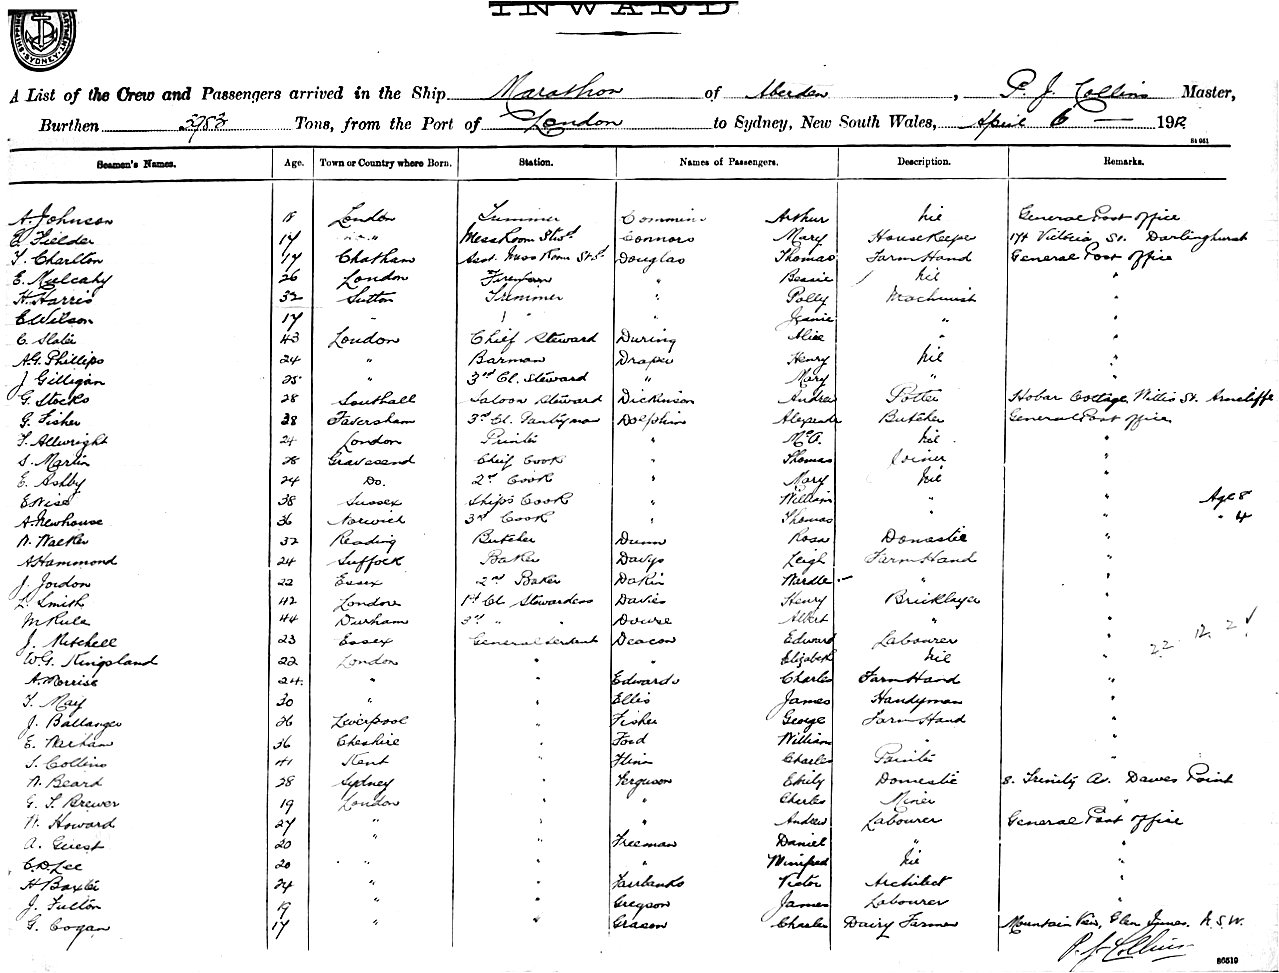 INWARD
DEPARTMENT
SYDNEY
A List of the Crew and Passengers arrived in the Ship Marathon of Aberdeen, P. J. Collins Master,
Burthen Tons, from the Port of London to Sydney, New South Wales, April 6 — 191
84 051
Seamen's Names. Age. Town or Country where Born. Station. Names of Passengers. Description. Remarks.
A. Johnson 18 London Trimmer Commins Arthur Nil General Post office
E. Fielder 17 " " Mess Room Stwd Connors Mary Housekeeper 174 Victoria St. Darlinghurst
T. Charlton 17 Chatham Asst. Mess Room Std. Douglas Thomas Farm Hand General Post office
E. Mulcahy 26 London Fireman " Bessie Nil "
H. Harris 32 Sutton Trimmer " Polly Machinist "
E Wilson 17 " " " Jeanie " "
C. Slater 43 London Chief Steward During Alice " "
A.G. Phillips 24 " Barman Draper Henry Nil "
J Gilligan 25 " 3rd Cl. Steward " Mary " "
G. Stocks 28 Southall Saloon Steward Dickinson Andrew Potter Hobar Cottage, Willis St. Arncliffe
G. Fisher 38 Faversham 3rd Cl. Pantryman Dolphins Alexander Butcher General Post office
T. Allwright 24 London Printer " Nil "
S. Martin 28 Gravesend Chief Cook " Thomas Joiner "
E. Ashby 24 Do. 2nd Cook " Mary Nil "
E Wise 38 Sussex Ships Cook " William " " Age 8
A. Newhouse 36 Norwich 3rd Cook " Thomas " " " 4
W. Walker 32 Reading Butcher Dunn Rosa Domestic "
A Hammond 24 Suffolk Baker Davys Leigh Farm Hand "
J. Jordon 22 Essex 2nd Baker Dakin Wardle - " "
L. Smith 42 London 1st Cl Stewardess Davies Henry Bricklayer "
M Rule 44 Durham 3rd " " Dowse Albert " "
J. Mitchell 23 Essex General Servant Deacon Edward Labourer " 22 12 21
W.G. Kingsland 22 London " " Elizabeth Nil "
A. Morriss 24 " " Edwards Charles Farm Hand "
T. May 30 " " Ellis James Handyman "
J. Ballanger 26 Liverpool " Fisher George Farm Hand "
E. 36 Cheshire " Ford William " "
S. Collins 41 Kent " Flinn Charles Painter "
W. Beard 28 Sydney " Ferguson Emily Domestic 8. Trinity Av. Dawes Point
G. S. Brewer 19 London " " Charles Miner "
W. Howard 27 " " " Andrew Labourer General Post office
A. Guest 20 " " Freeman Daniel " "
C.D. Lee 20 " " " Winifred Nil "
H Baxter 24 " " Fairbanks Victor Architect "
J. Fulton 19 " " Gregson James Labourer "
G. Cogan 17 " " Grason Charles Dairy Farmer Mountain View, Glen Innes. N.S.W.
P. J. Collins
86519